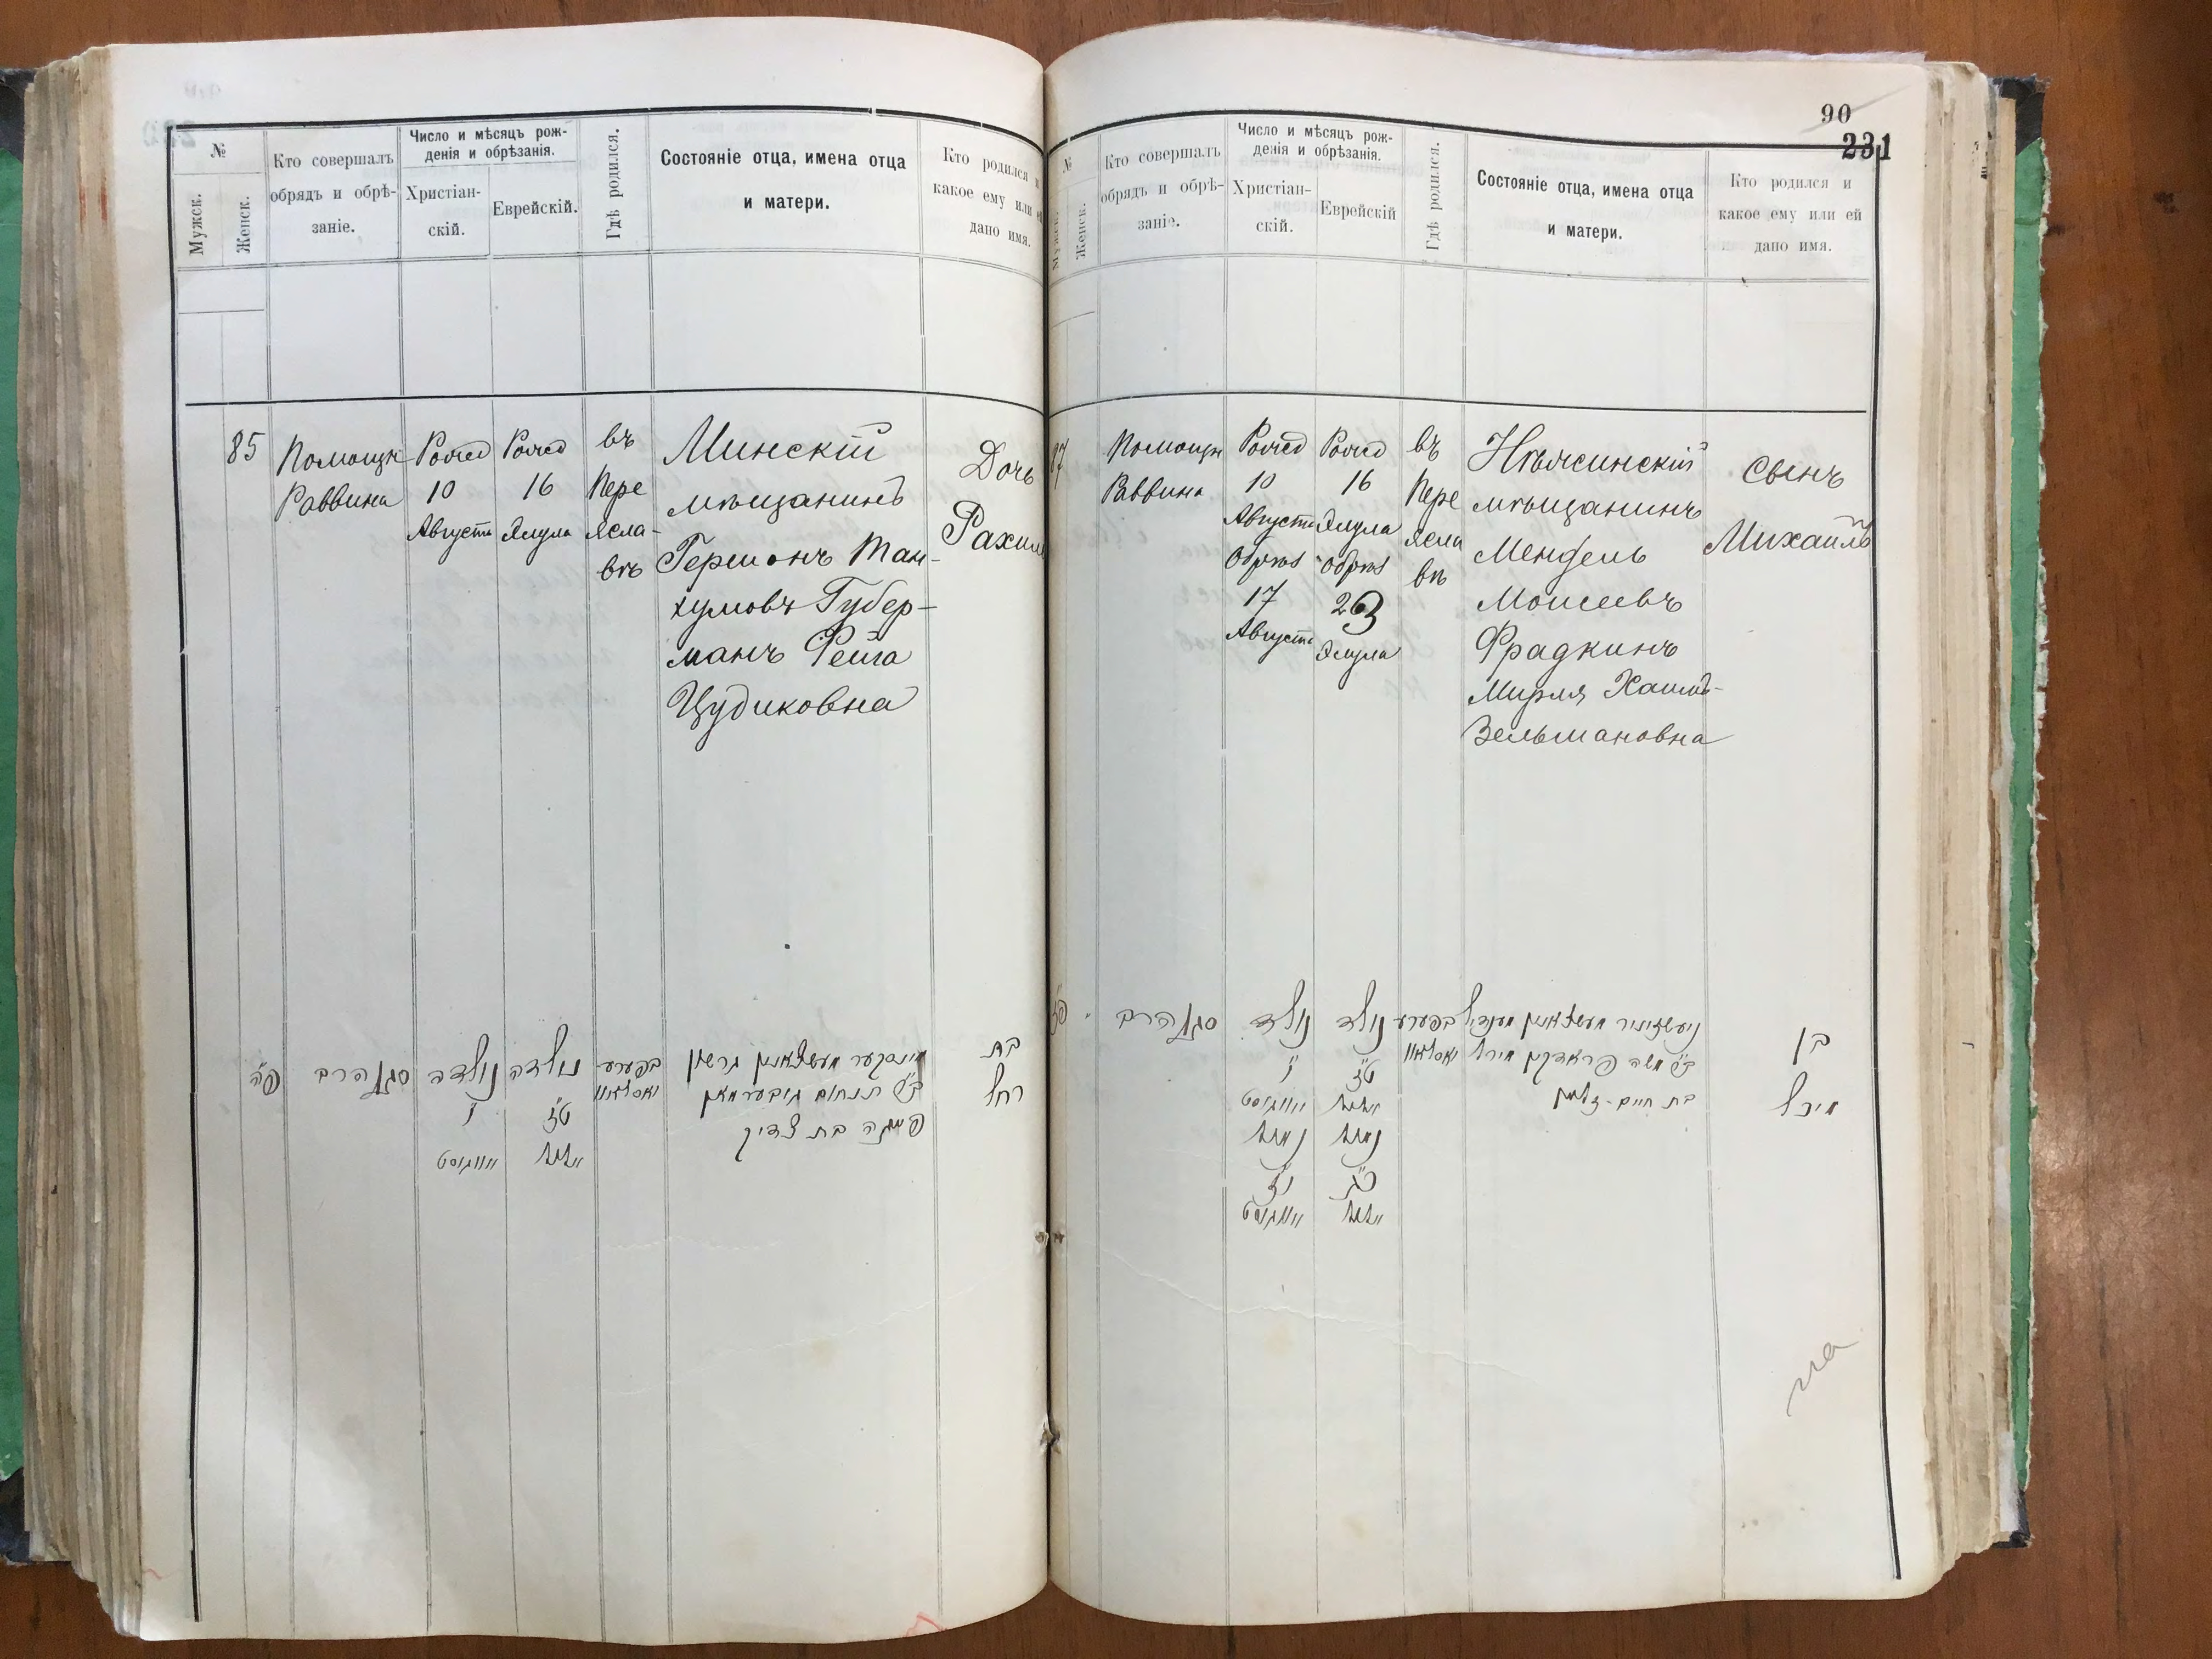 №
Мужск.
Женск.
Кто совершалъ
обрядъ и обрѣ-
заніе.
Число и мѣсяцъ рож-
денія и обрѣзанія.
Христіан-
скій.
Еврейскій.
Гдѣ родился.
Состояніе отца, имена отца
и матери.
Кто родился и
какое ему или ей
дано имя.
85
Помощн
Раввина
Рожед
10
Августа
Рожед
16
Элула
въ
Пере
ясла-
вѣ
Минскій
мѣщанинъ
Гершонъ Тан-
хумовъ Губер-
манъ Фейга
Цудиковна
Дочь
Рахиль
פ״ה
סגן הרב
נולדה
י׳
אווגוסט
נולדה
ט״ז
אלול
בפערע
יאסלאוו
מינסקער מעשצאנין גרשון
ב״ר תנחום גובערמאן
פייגה בת צדיק
בת
רחל
90
231
№
Мужск.
Женск.
Кто совершалъ
обрядъ и обрѣ-
заніе.
Число и мѣсяцъ рож-
денія и обрѣзанія.
Христіан-
скій.
Еврейскій
Гдѣ родился.
Состояніе отца, имена отца
и матери.
Кто родился и
какое ему или ей
дано имя.
Помощн
Раввина
Рожед
10
Августа
Обрѣз
17
Августа
Рожед
16
Элула
обрѣз
23
Элула
въ
Пере
ясла
вѣ
Нѣжинскій
мѣщанинъ
Мендель
Моисеевъ
Фрадкинъ
Мирля Хаимъ-
Зельмановна
Сынъ
Михаилъ
סגן הרב
נולד
י׳
אווגוסט
נימול
י״ז
אווגוסט
נולד
ט״ז
אלול
נימול
כ״ג
אלול
בפערע
יאסלאוו
ניעשזינער מעשצאנין מענדיל
ב״ר משה פראדקין מירל
בת חיים-זלמן
בן
מיכל